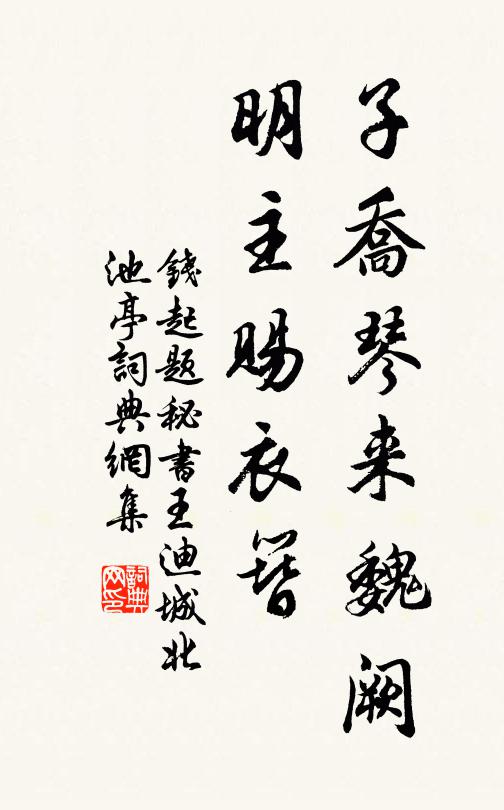 子喬琴来魏阙
明主賜衣簪
錢起題秘書王迪城北
池亭詞典網集
詞典网印